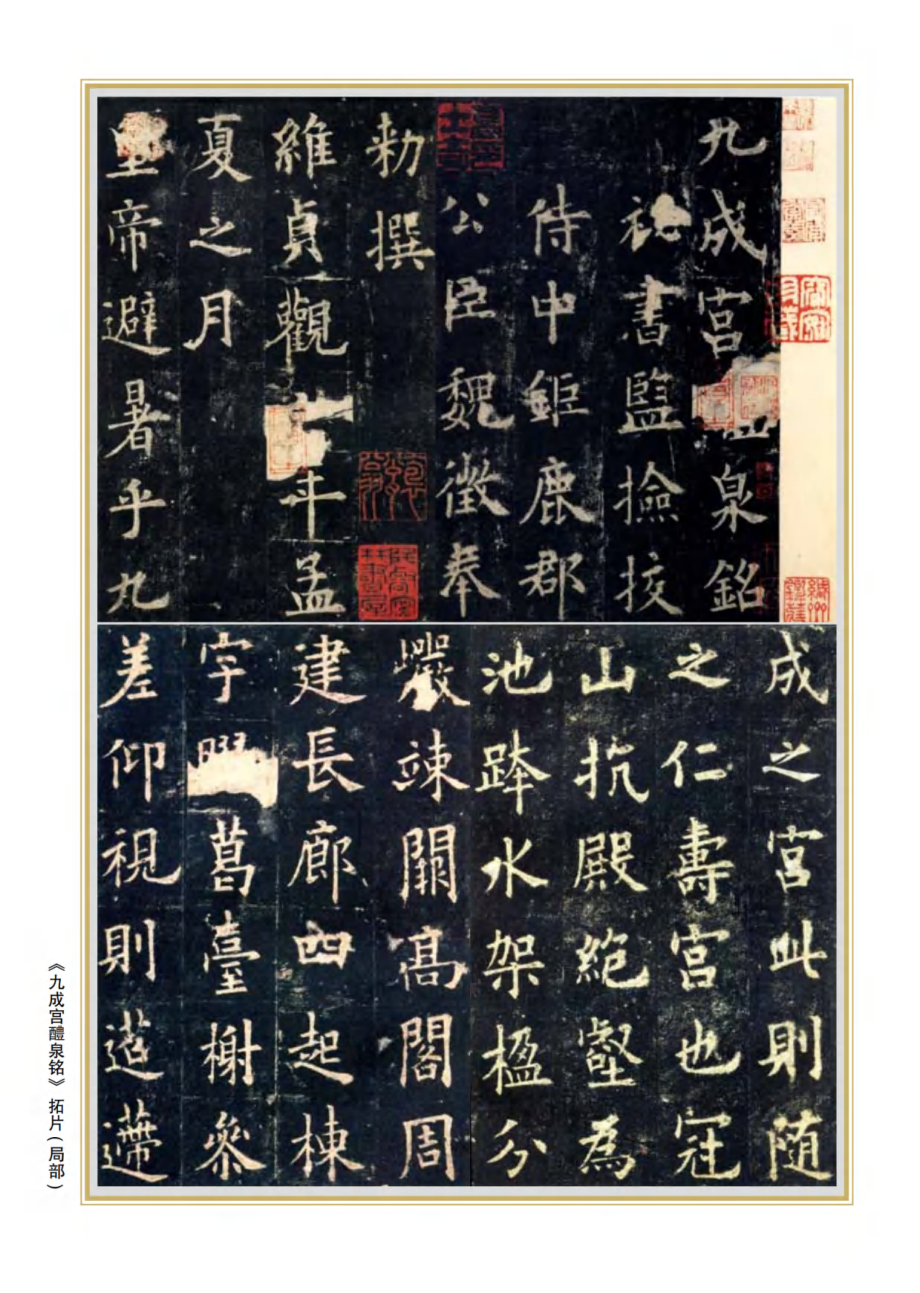 九成宮泉銘
祕書監撿挍
侍中鉅鹿郡
公臣魏徵奉
勅撰
維貞觀年孟
夏之月
皇帝避暑乎九
成之宮此則随
之仁壽宮也冠
山抗殿絕壑為
池跨水架楹分
巖竦闕高閣周
建長廊四起棟
宇葛臺榭參
差仰視則迢遰
《九成宫醴泉铭》拓片(局部)